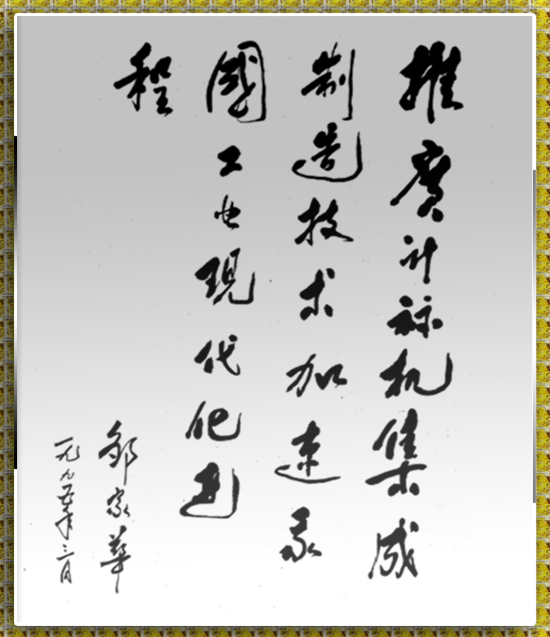 推廣计祘机集成
制造技术加速我
國工业現代化进
程
邹家華
一九九五年三月